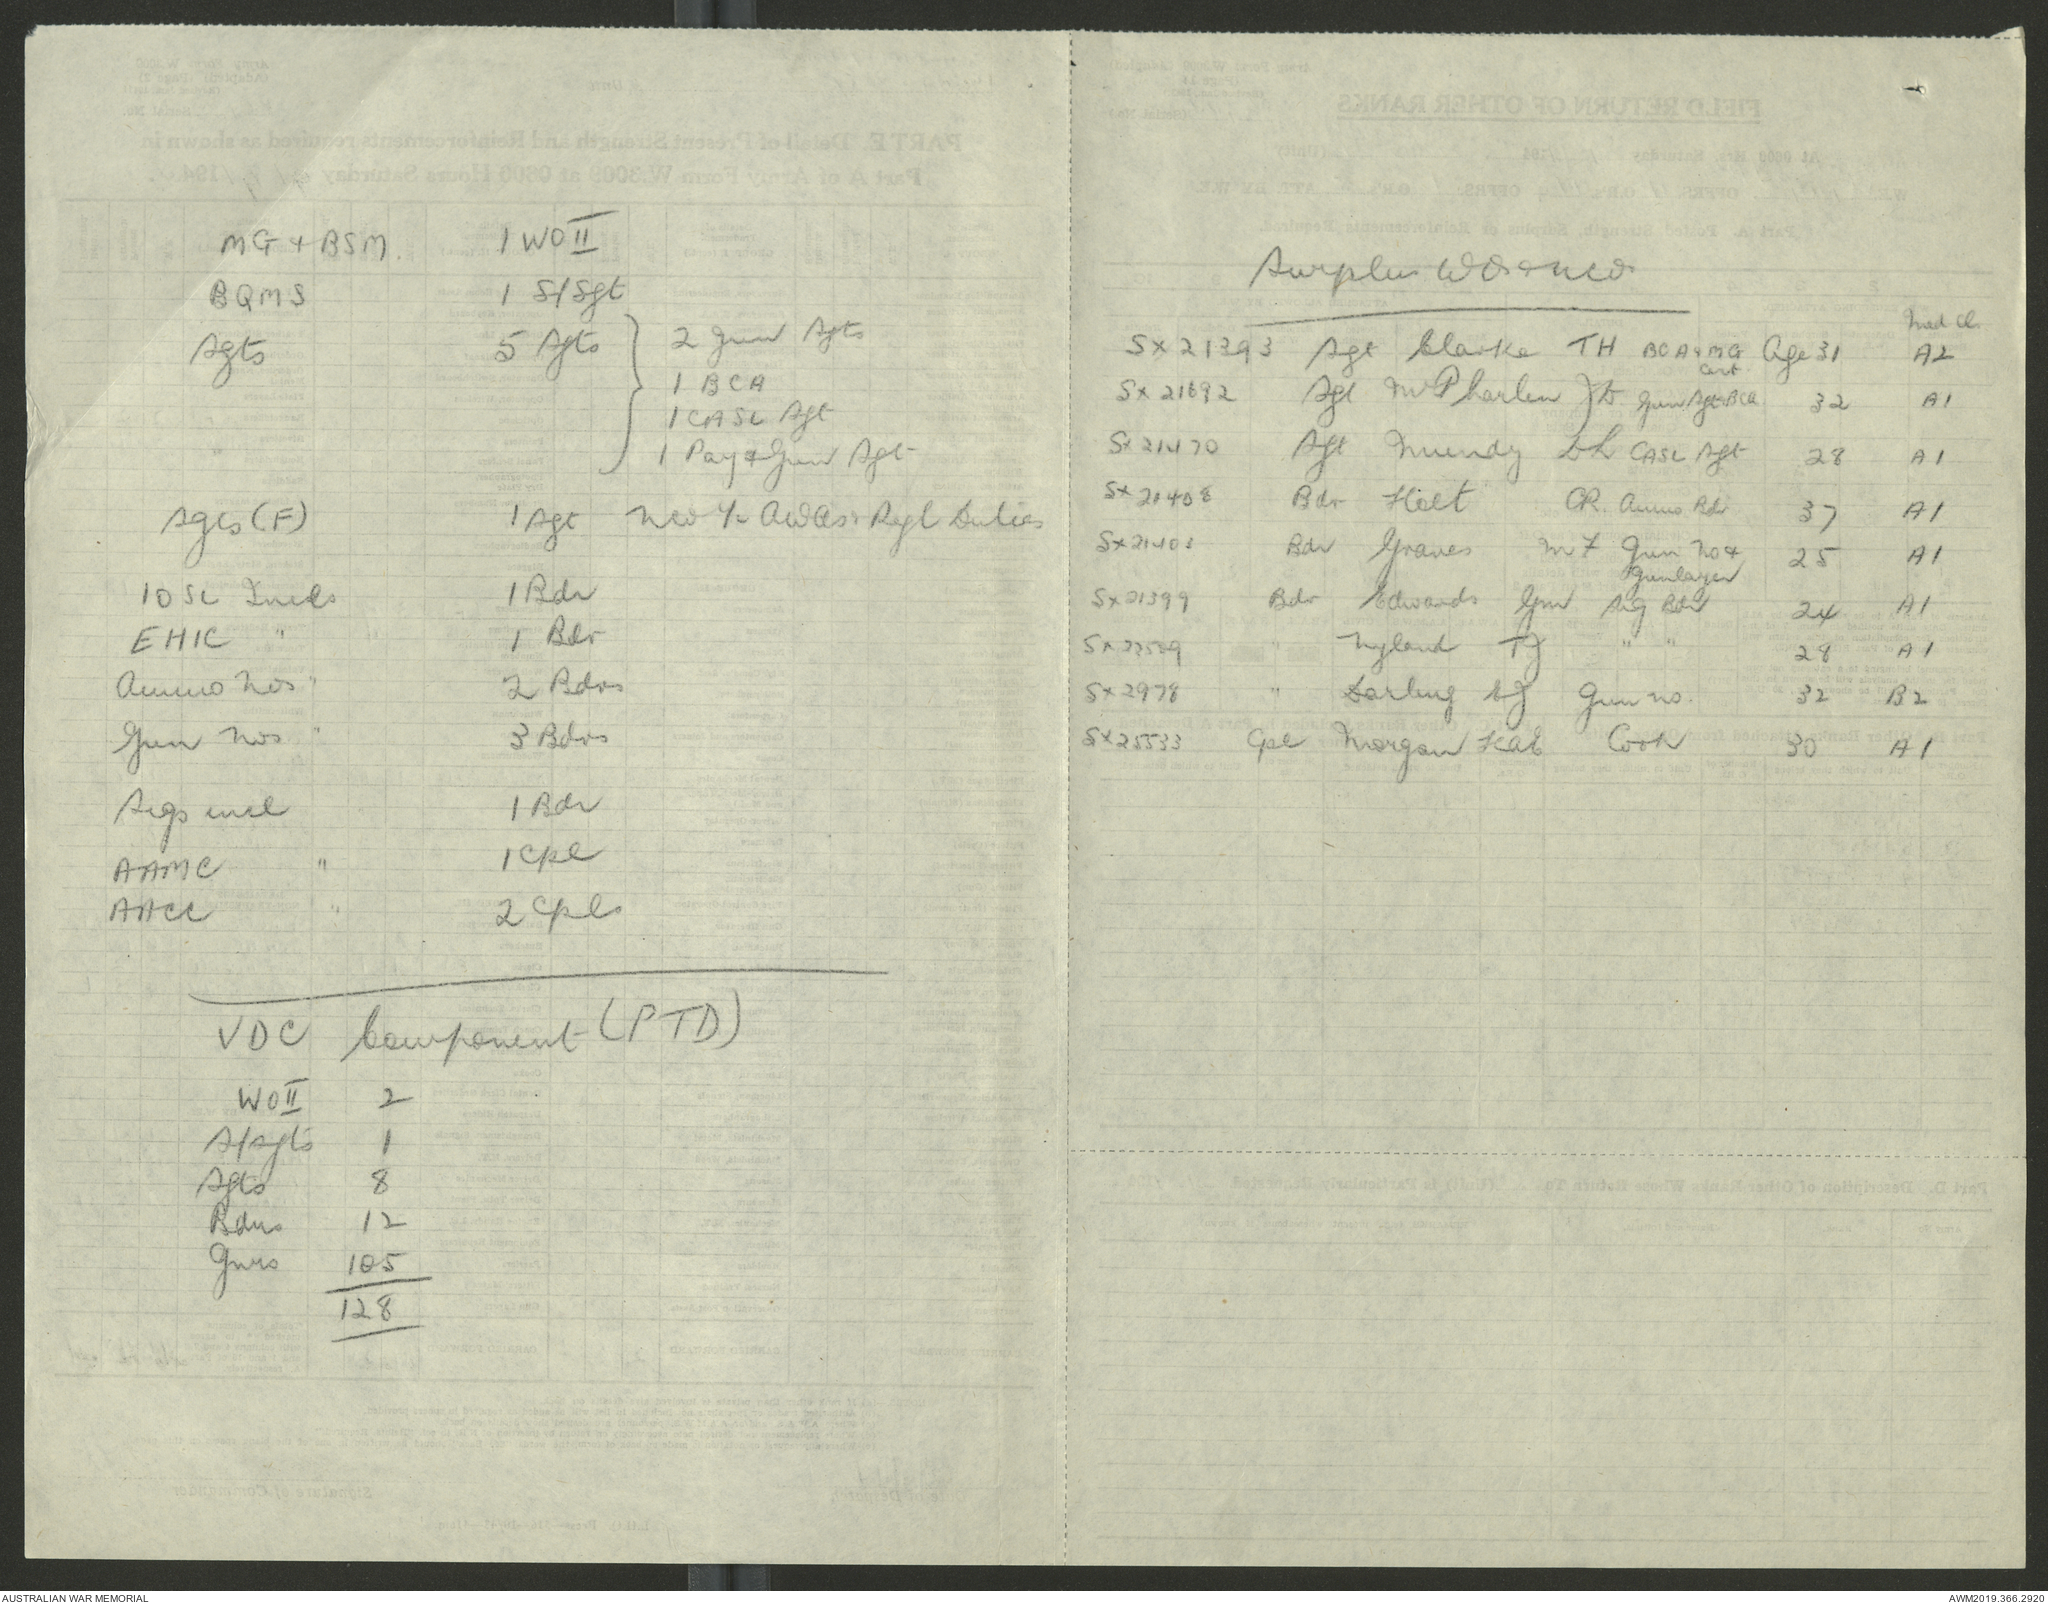 MG & BSM. 1 WO II
BQMS 1 S/Sgt
Sgts 5 Sgts
2 Gun Sgts
1 BCA
1 CASL Sgt
1 Pay & Gun Sgt
Sgts (F) 1 Sgt NCO i/c AWAS & Regt Duties
10 SL Incls 1 Bdr
EHIC " 1 Bdr
Ammo Nos " 2 Bdrs
Gun Nos " 3 Bdrs
Sigs incl 1 Bdr
AAMC " 1 Cpl
AACC " 2 Cpls
VDC Component (PTD)
WO II 2
S/Sgts 1
Sgts 8
Bdrs 12
Gnrs 105
128
Surplus WOs & NCOs
Med Cl.
SX21393 Sgt Clarke TH BCA & MG Age 31 A2
Cert.
SX21692 Sgt McPharlen Gun Sgt & BCA 32 A1
SX21470 Sgt Mundy DL CASL Sgt 28 A1
SX21408 Bdr Holt CR. Ammo Bdr 37 A1
SX21403 Bdr Graves MF Gun No & 25 A1
Gunlayer
SX21399 Bdr Edwards GM Sig Bdr 24 A1
" Nyland TJ " " 28 A1
SX2978 " Darling SJ Gun no. 32 B2
SX25533 Cpl Morgan Cook 30 A1
AUSTRALIAN WAR MEMORIAL
AWM2019.366.2920